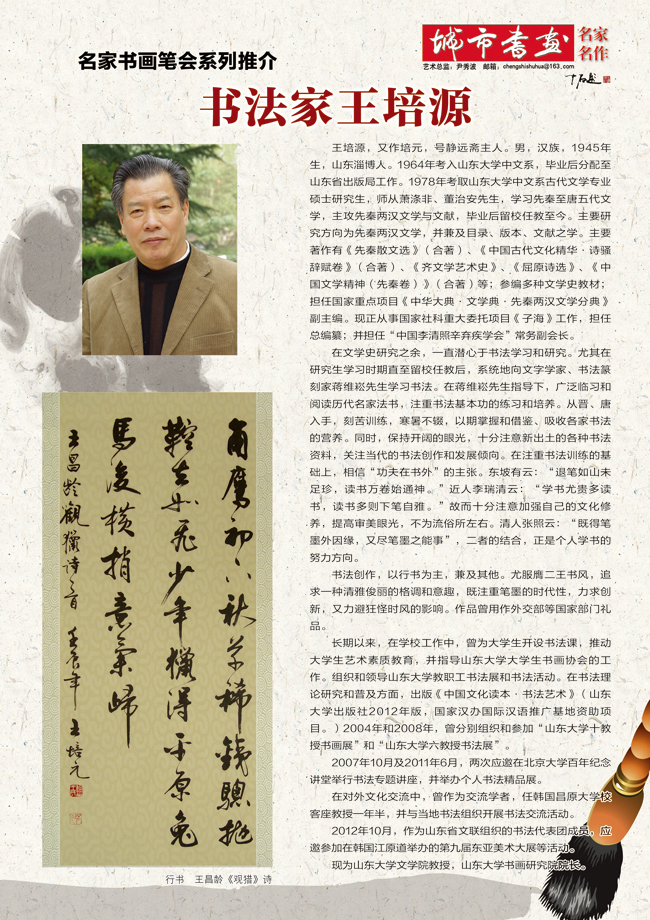 名家书画笔会系列推介
城市书画
名家
名作
艺术总监：尹秀波 邮箱：chengshishuhua@163.com
书法家王培源
王培源，又作培元，号静远斋主人。男，汉族，1945年
生，山东淄博人。1964年考入山东大学中文系，毕业后分配至
山东省出版局工作。1978年考取山东大学中文系古代文学专业
硕士研究生，师从萧涤非、董治安先生，学习先秦至唐五代文
学，主攻先秦两汉文学与文献，毕业后留校任教至今。主要研
究方向为先秦两汉文学，并兼及目录、版本、文献之学。主要
著作有《先秦散文选》（合著）、《中国古代文化精华·诗骚
辞赋卷》（合著）、《齐文学艺术史》、《屈原诗选》、《中
国文学精神（先秦卷）》（合著）等；参编多种文学史教材；
担任国家重点项目《中华大典·文学典·先秦两汉文学分典》
副主编。现正从事国家社科重大委托项目《子海》工作，担任
总编纂；并担任“中国李清照辛弃疾学会”常务副会长。
在文学史研究之余，一直潜心于书法学习和研究。尤其在
研究生学习时期直至留校任教后，系统地向文字学家、书法篆
刻家蒋维崧先生学习书法。在蒋维崧先生指导下，广泛临习和
阅读历代名家法书，注重书法基本功的练习和培养。从晋、唐
入手，刻苦训练，寒暑不辍，以期掌握和借鉴、吸收各家书法
的营养。同时，保持开阔的眼光，十分注意新出土的各种书法
资料，关注当代的书法创作和发展倾向。在注重书法训练的基
础上，相信“功夫在书外”的主张。东坡有云：“退笔如山未
足珍，读书万卷始通神。”近人李瑞清云：“学书尤贵多读
书，读书多则下笔自雅。”故而十分注意加强自己的文化修
养，提高审美眼光，不为流俗所左右。清人张照云：“既得笔
墨外因缘，又尽笔墨之能事”，二者的结合，正是个人学书的
努力方向。
书法创作，以行书为主，兼及其他。尤服膺二王书风，追
求一种清雅俊丽的格调和意趣，既注重笔墨的时代性，力求创
新，又力避狂怪时风的影响。作品曾用作外交部等国家部门礼
品。
长期以来，在学校工作中，曾为大学生开设书法课，推动
大学生艺术素质教育，并指导山东大学大学生书画协会的工
作。组织和领导山东大学教职工书法展和书法活动。在书法理
论研究和普及方面，出版《中国文化读本·书法艺术》（山东
大学出版社2012年版，国家汉办国际汉语推广基地资助项
目。）2004年和2008年，曾分别组织和参加“山东大学十教
授书画展”和“山东大学六教授书法展”。
2007年10月及2011年6月，两次应邀在北京大学百年纪念
讲堂举行书法专题讲座，并举办个人书法精品展。
在对外文化交流中，曾作为交流学者，任韩国昌原大学校
客座教授一年半，并与当地书法组织开展书法交流活动。
2012年10月，作为山东省文联组织的书法代表团成员，应
邀参加在韩国江原道举办的第九届东亚美术大展等活动。
现为山东大学文学院教授，山东大学书画研究院院长。
角鹰初下秋草稀铁骢抛
鞚去如飞少年猎得平原兔
马后横捎意气归
王昌龄观猎诗一首 壬辰年 王培元
行书 王昌龄《观猎》诗